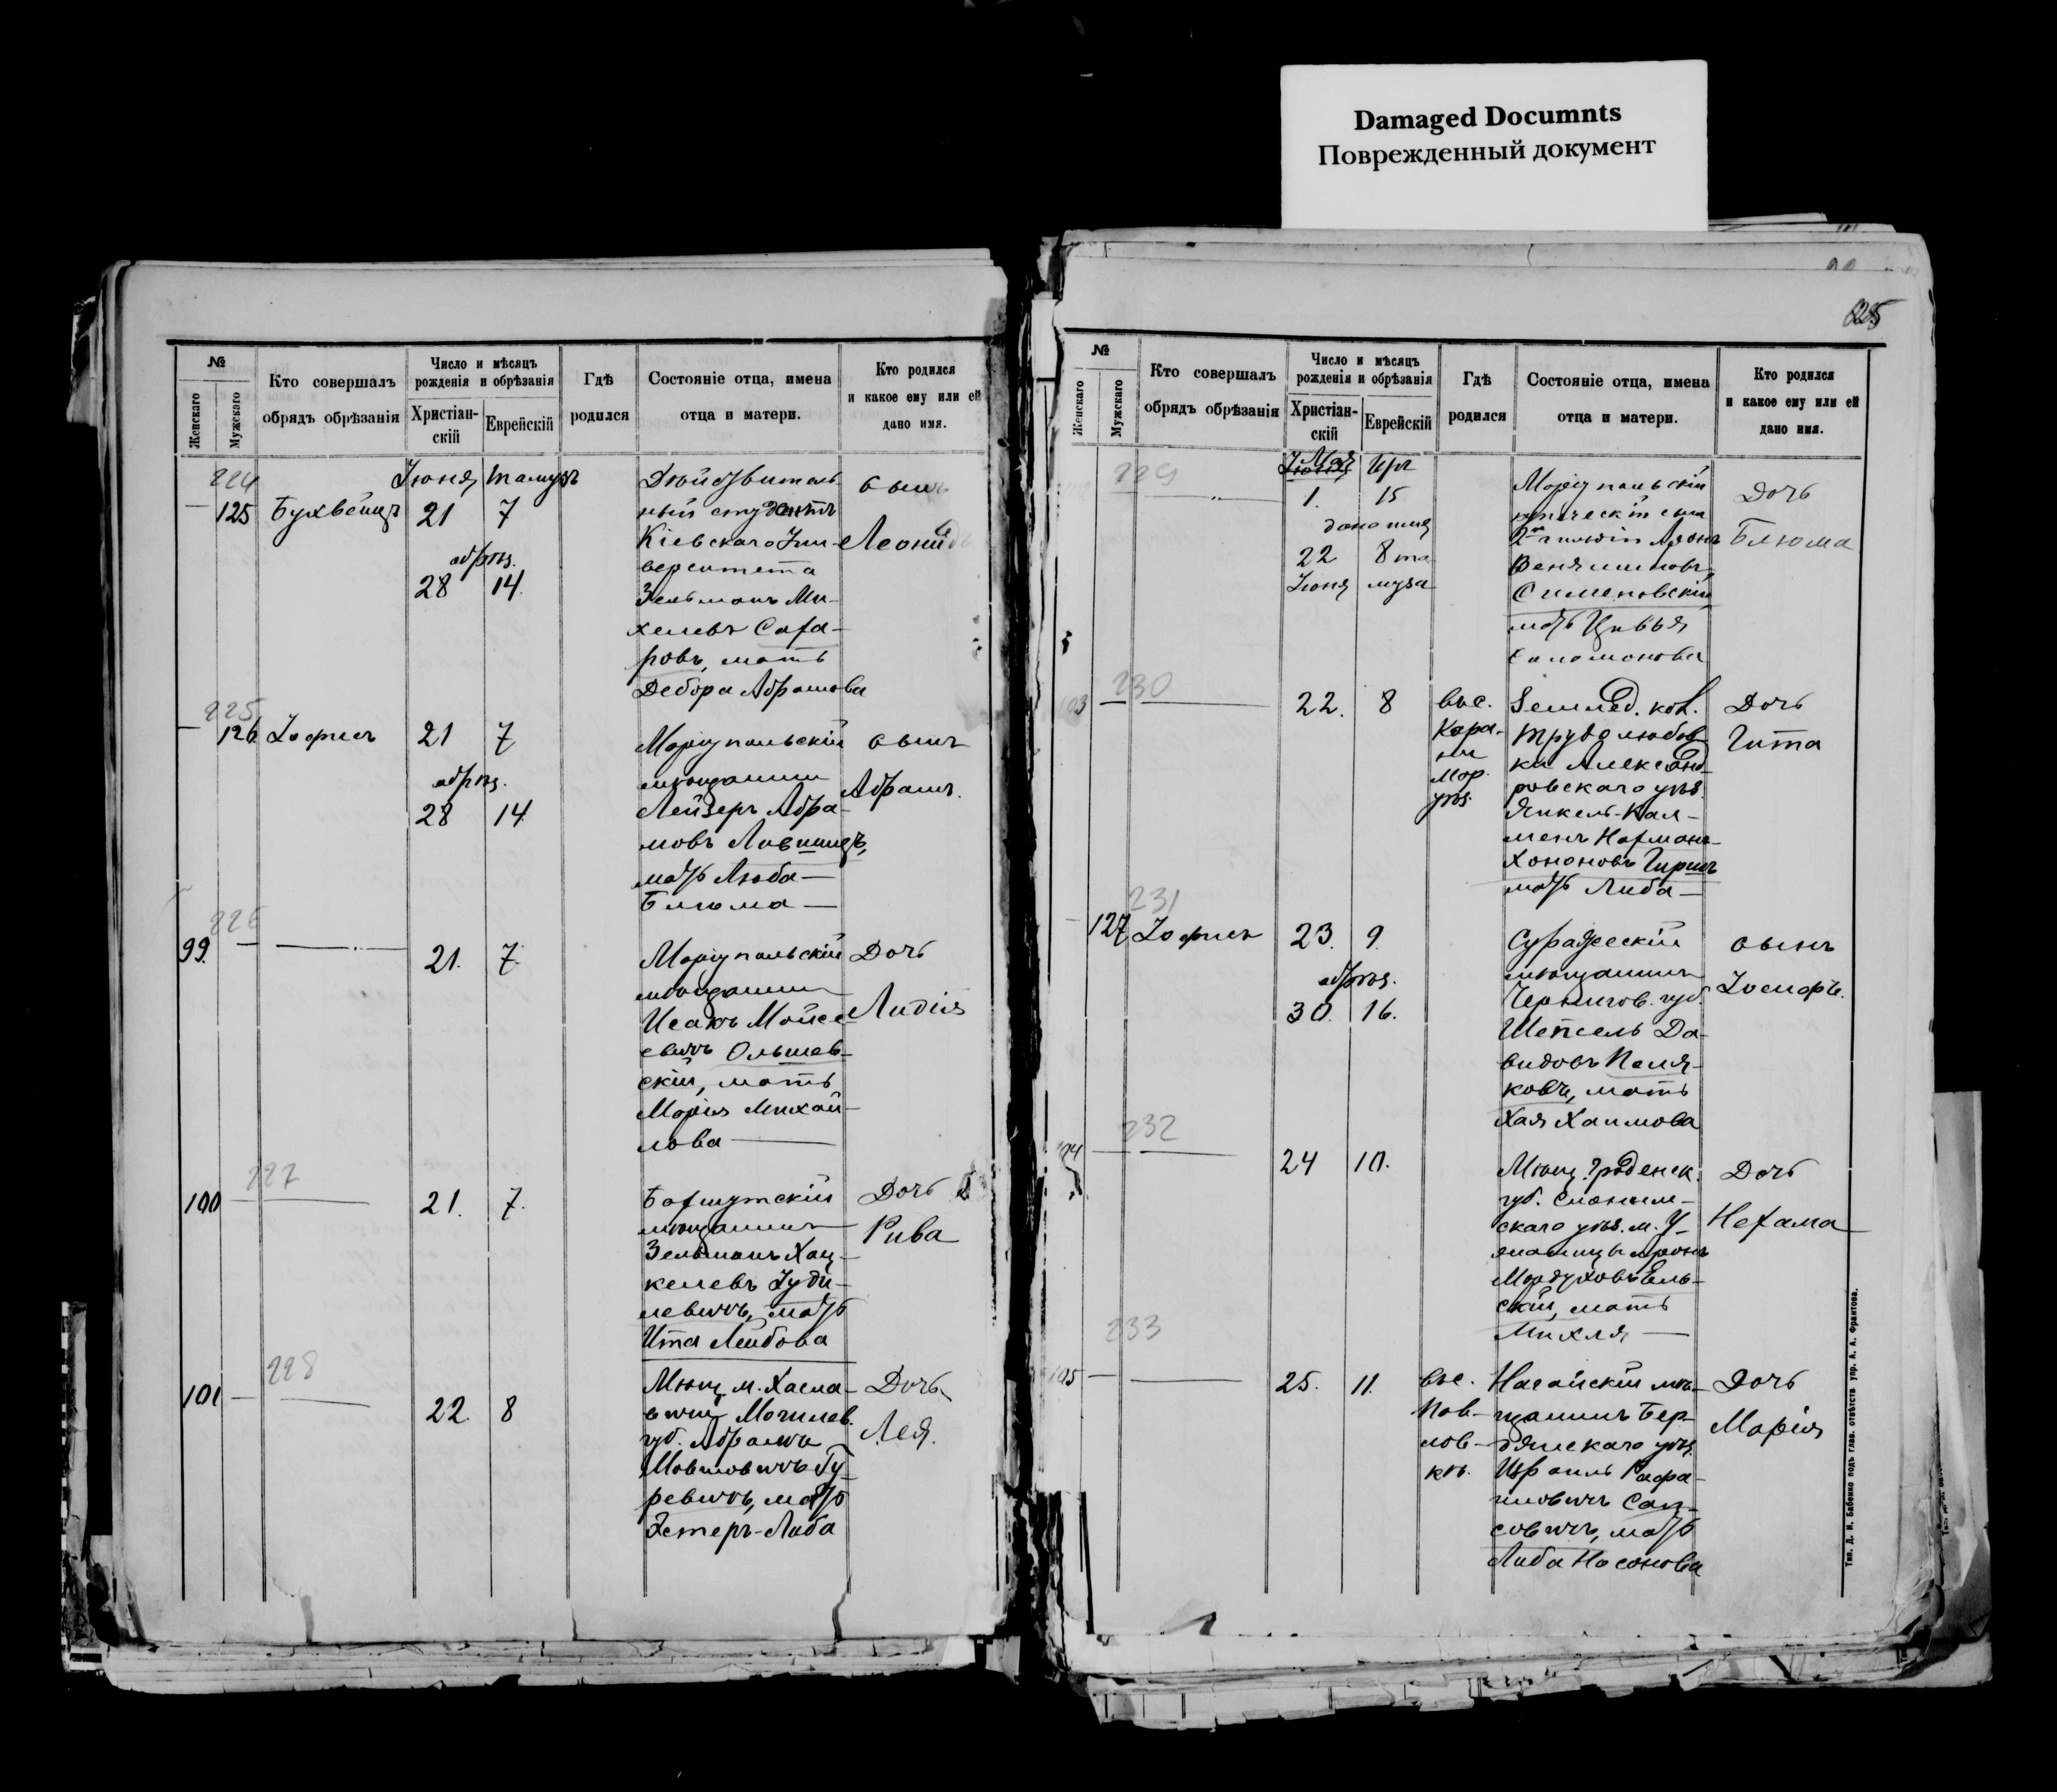 Damaged Documnts
Поврежденный документ
№
Женскаго
Мужскаго
Кто совершалъ
обрядъ обрѣзанія
Число и мѣсяцъ
рожденія и обрѣзанія
Христіан-
скій
Еврейскій
Гдѣ
родился
Состояніе отца, имена
отца и матери.
Кто родился
и какое ему или ей
дано имя.
224
Іюня Тамузъ
125 Бухвейцъ 21 7
обрѣз.
28 14.
Дѣйствитель-
ный студентъ
Кіевскаго Уни-
верситета
Зельманъ Ми-
хелевъ Саха-
ровъ, мать
Дебора Абрамова
сынъ
Леонидъ
225
126 Іофисъ 21 7
обрѣз.
28 14
Маріупольскій
мѣщанинъ
Лейзеръ Абра-
мовъ Лившицъ,
мать Люба-
Блюма
сынъ
Абрамъ.
226
99. 21. 7.
Маріупольскій
мѣщанинъ
Исаакъ Мойсе-
евичъ Ольшев-
скій, мать
Марія Михай-
лова
Дочь
Лидія
227
100 21. 7.
мѣщанинъ
Зельманъ Хац-
келевъ Іуди-
левичъ, мать
Ита Лейбова
Дочь
Рива
228
101 22. 8
Мѣщ. м. Хасла-
вичи Могилев.
губ. Абрамъ
Мовшовичъ Гу-
ревичъ, мать
Эстеръ-Либа
Дочь
Лея.
625
№
Женскаго
Мужскаго
Кто совершалъ
обрядъ обрѣзанія
Число и мѣсяцъ
рожденія и обрѣзанія
Христіан-
скій
Еврейскій
Гдѣ
родился
Состояніе отца, имена
отца и матери.
Кто родился
и какое ему или ей
дано имя.
229
Мая Іюня Иръ
1. 15
дано имя
22 8 та
Іюня муза
Маріупольскій
купеческій сынъ
2й гильдіи Аронъ
Веніаминовъ
Симеповскій
мать Цивья
Соломонова
Дочь
Блюма
230
103 22. 8
выс.
Кара-
ни
Мар.
уѣз.
Землед. кол.
Трудолюбов
ки Александ-
ровскаго уѣз.
Янкель-Кал-
менъ Нахманъ-
Хононовъ Гиршъ
мать Либа
Дочь
Гита
231
127 Іофисъ 23. 9.
обрѣз.
30. 16.
Суражескій
мѣщанинъ
Чернигов. губ.
Шепсель Да-
видовъ Поля-
ковъ, мать
Хая Хаимова
сынъ
Іосифъ.
232
104 24 10.
Мѣщ. Гроденск.
губ. Слоним-
скаго уѣз. м.
Мордуховъ Ель-
скій, мать
Михля
Дочь
Нехама
233
105 25. 11.
выс.
Пов-
лов-
кѣ.
Ногайскій мѣ-
щанинъ Бер-
дянскаго уѣз.
Израиль Рафа-
иловичъ Сап-
совичъ, мать
Либа Носонова
Дочь
Марія
Тип. Д. И. Бабенко подъ глав. отвѣтств. упр. А. А. Франтова.